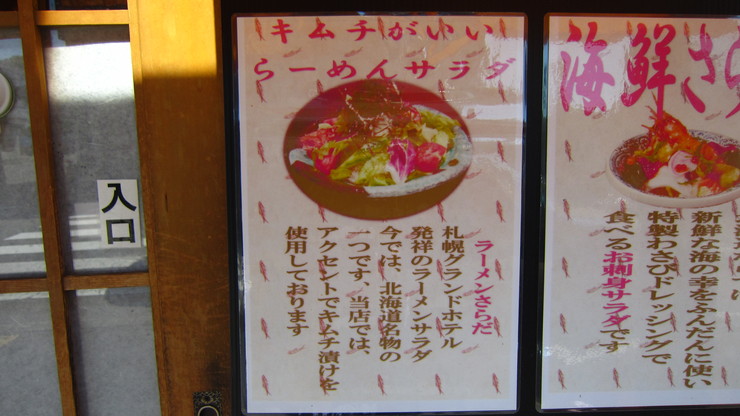 入口
キムチがいい
らーめんサラダ
ラーメンさらだ
札幌グランドホテル
発祥のラーメンサラダ
今では、北海道名物の
一つです、当店では、
アクセントでキムチ漬けを
使用しております
海鮮さら
新鮮な海の幸をふんだんに使い
特製わさびドレッシングで
食べるお刺身サラダです